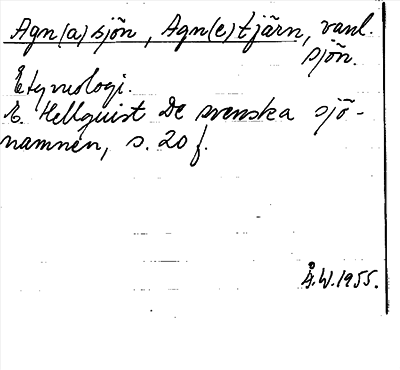 Agn(a)sjön, Agn(e)tjärn, vanl.
sjön.
Etymologi.
E. Hellquist De svenska sjö-
namnen, s. 20 f.
Å.W. 1955.